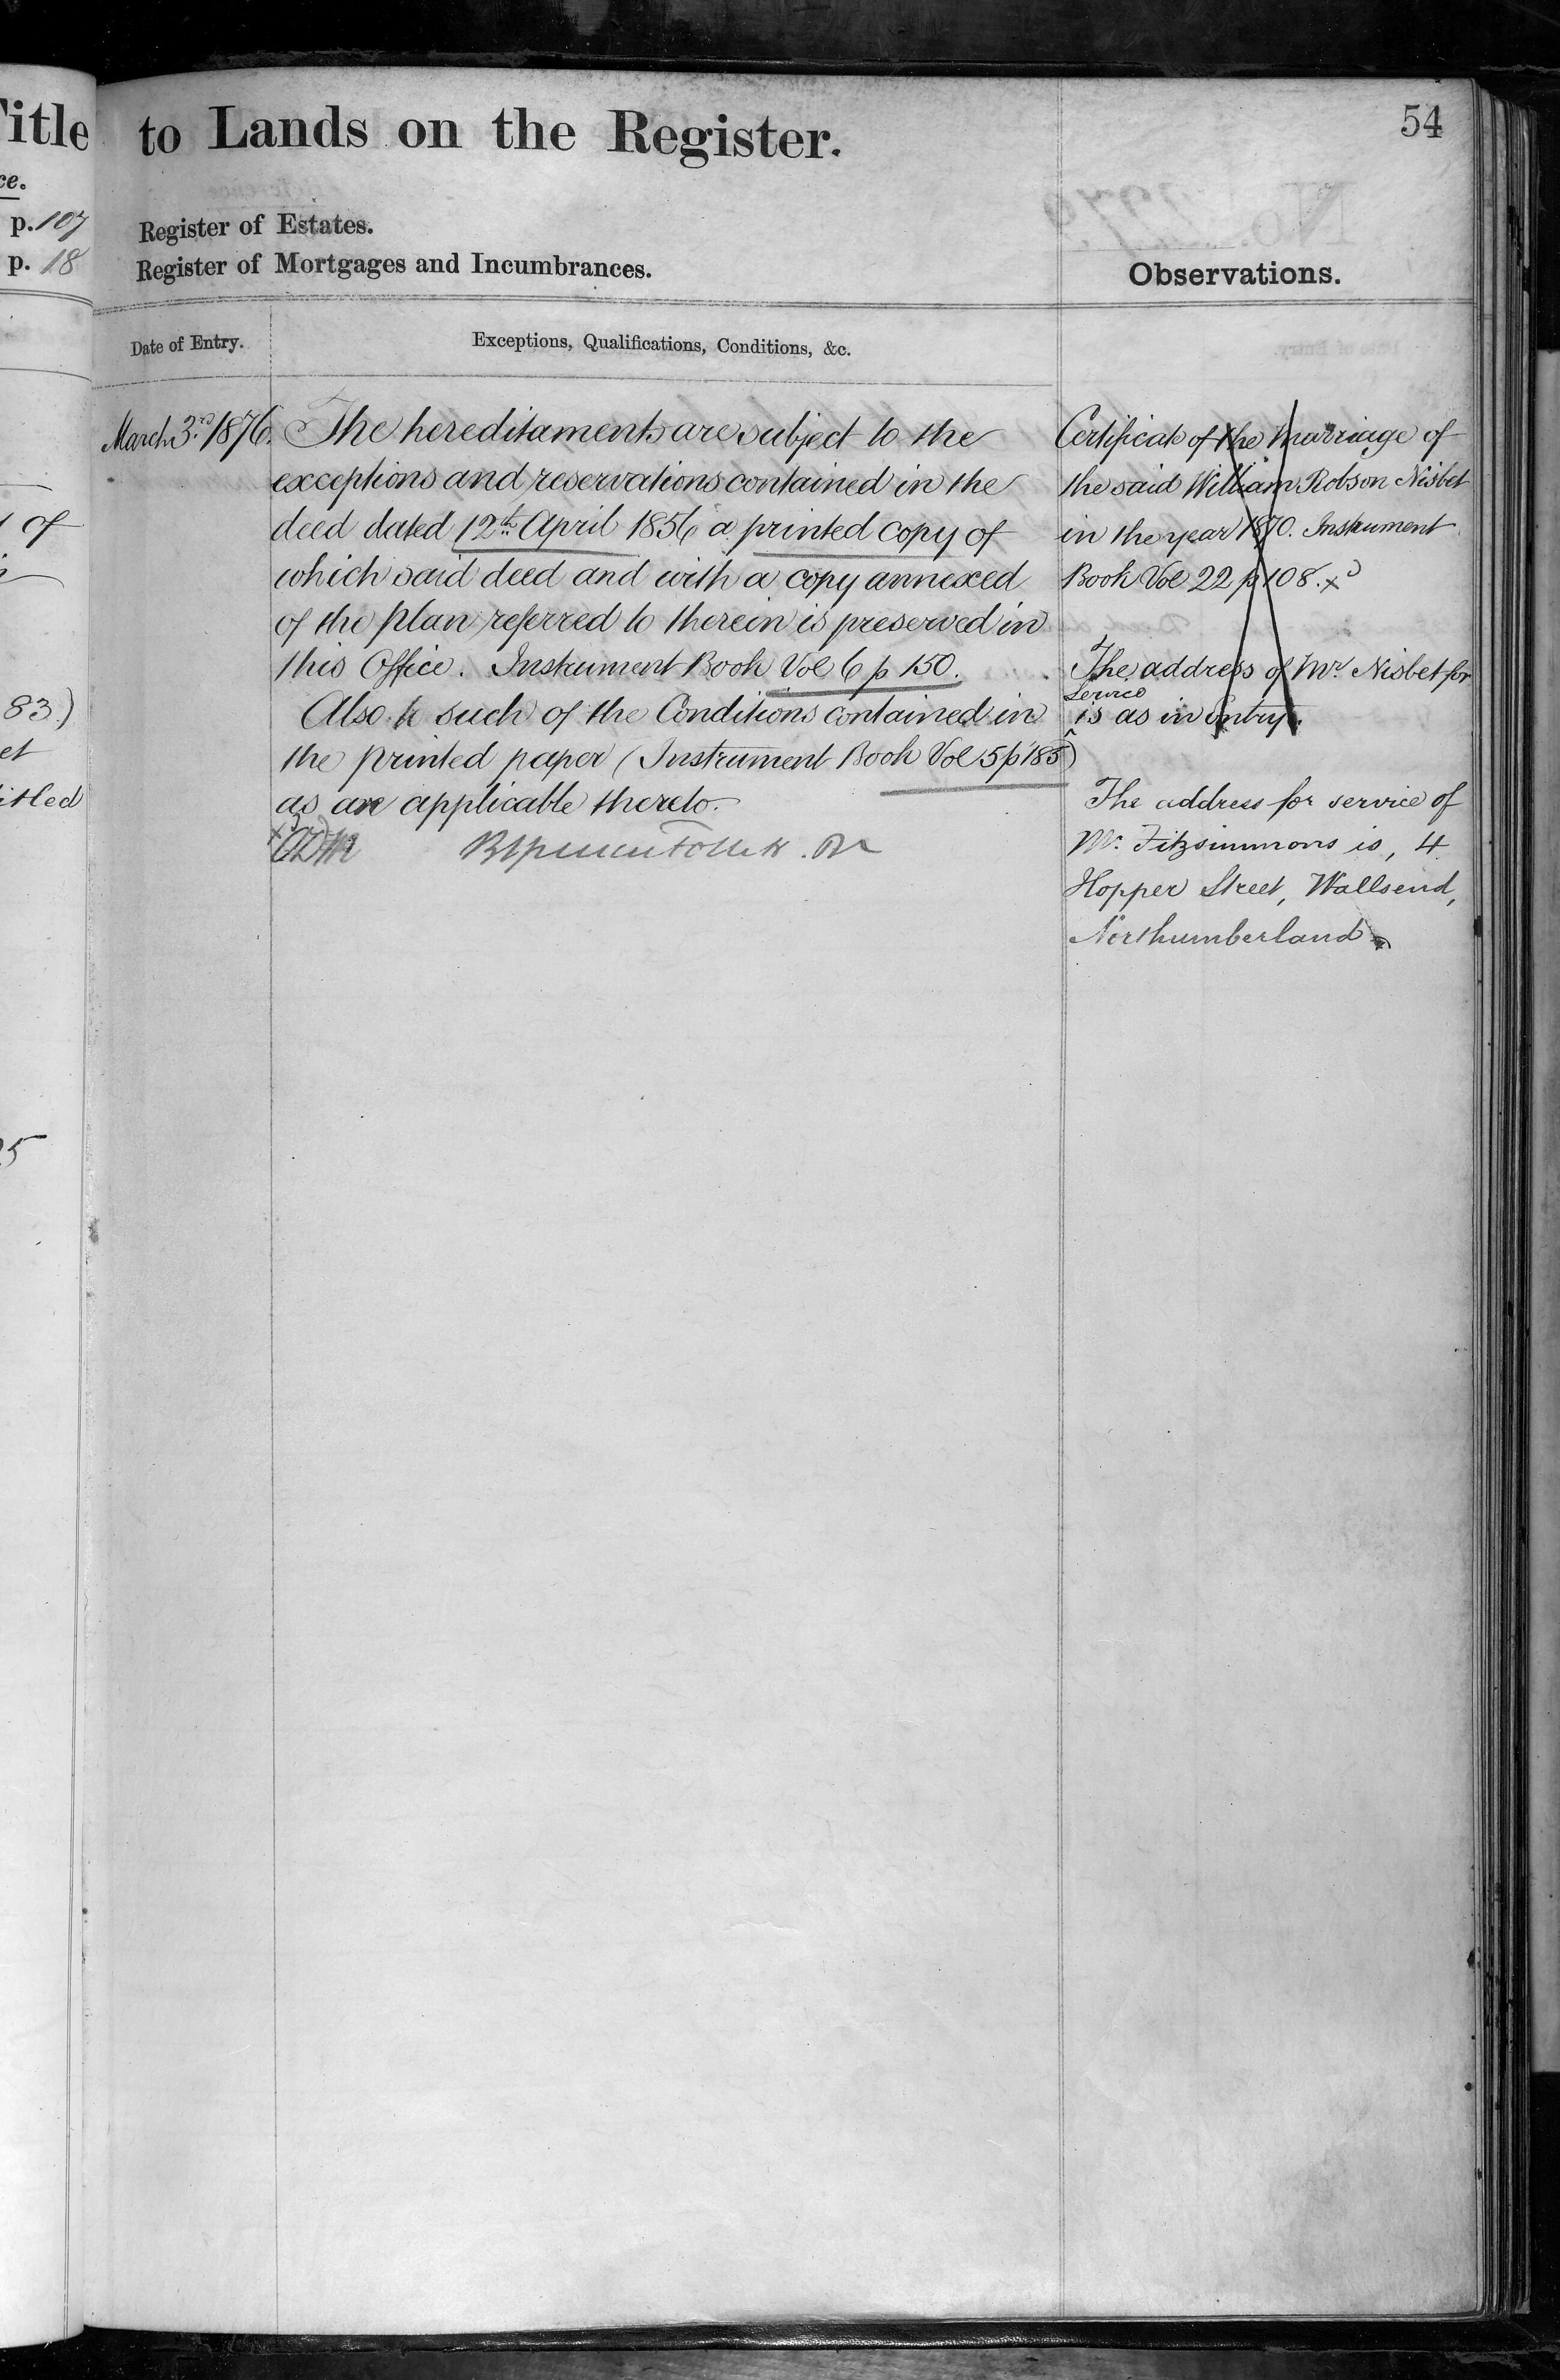 Title
to Lands on the Register.
54
ce.
p. 107
Register of Estates.
p. 18
Register of Mortgages and Incumbrances.
Observations.
Date of Entry.
Exceptions, Qualifications, Conditions, &c.
March 3rd 1876.
The hereditaments are subject to the
exceptions and reservations contained in the
deed dated 12th April 1856 a printed copy of
which said deed and with a copy annexed
of the plan referred to therein is preserved in
this Office. Instrument Book Vol 6 p 150.
Also to such of the Conditions contained in
the printed paper (Instrument Book Vol 5 p 185)
as are applicable thereto.
Certificate of the Marriage of
the said William Robson Nisbet
in the year 1870. Instrument
Book Vol 22 p 108. x
The address of Mr. Nisbet for
service
is as in Entry.
The address for service of
Mr. Fitzsimmons is, 4
Hopper Street, Wallsend,
Northumberland
of
83.)
et
itled
25